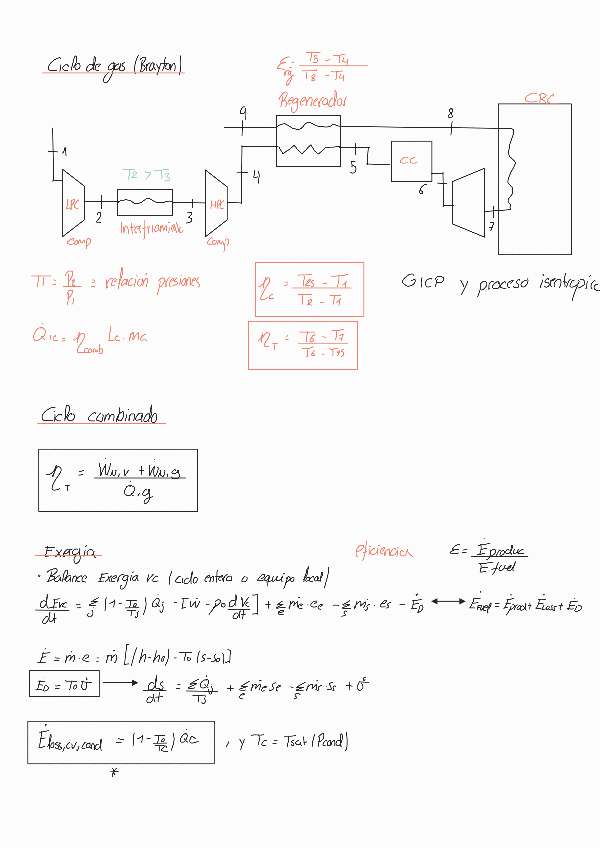 Ciclo de gas (Brayton)
Erg = (T5 - T4) / (T8 - T4)
Regenerador
CRC
9
8
1
T2 > T3
4
5
CC
6
LPC
2
3
HPC
7
comp
Interfriamiento
comp
π = P2 / P1 = relación presiones
ηc = (T2s - T1) / (T2 - T1)
GICP y proceso isentrópico
Q̇ic = ηcomb Lc · mc
ηT = (T6 - T7) / (T6 - T7s)
Ciclo combinado
ηT = (ẆN,v + ẆN,g) / Q̇,g
Exergía
eficiencia
ε = Ėproduc / Ėfuel
· Balance Exergía vc (ciclo entero o equipo local)
dEvc/dt = Σj (1 - T0/Tj) Q̇j - [Ẇ - p0 dVc/dt] + Σe ṁe · ee - Σs ṁs · es - ĖD ↔ Ėfuel = Ėprod + Ėloss + ĖD
Ė = ṁ · e = ṁ [(h-h0) - T0 (s-s0)]
ED = T0 σ̇ → ds/dt = ΣQ̇j/Tj + Σe ṁe se - Σs ṁs ss + σ̇
Ėloss,cv,cond = (1 - T0/Tc) Q̇c , y Tc = Tsat (Pcond)
*